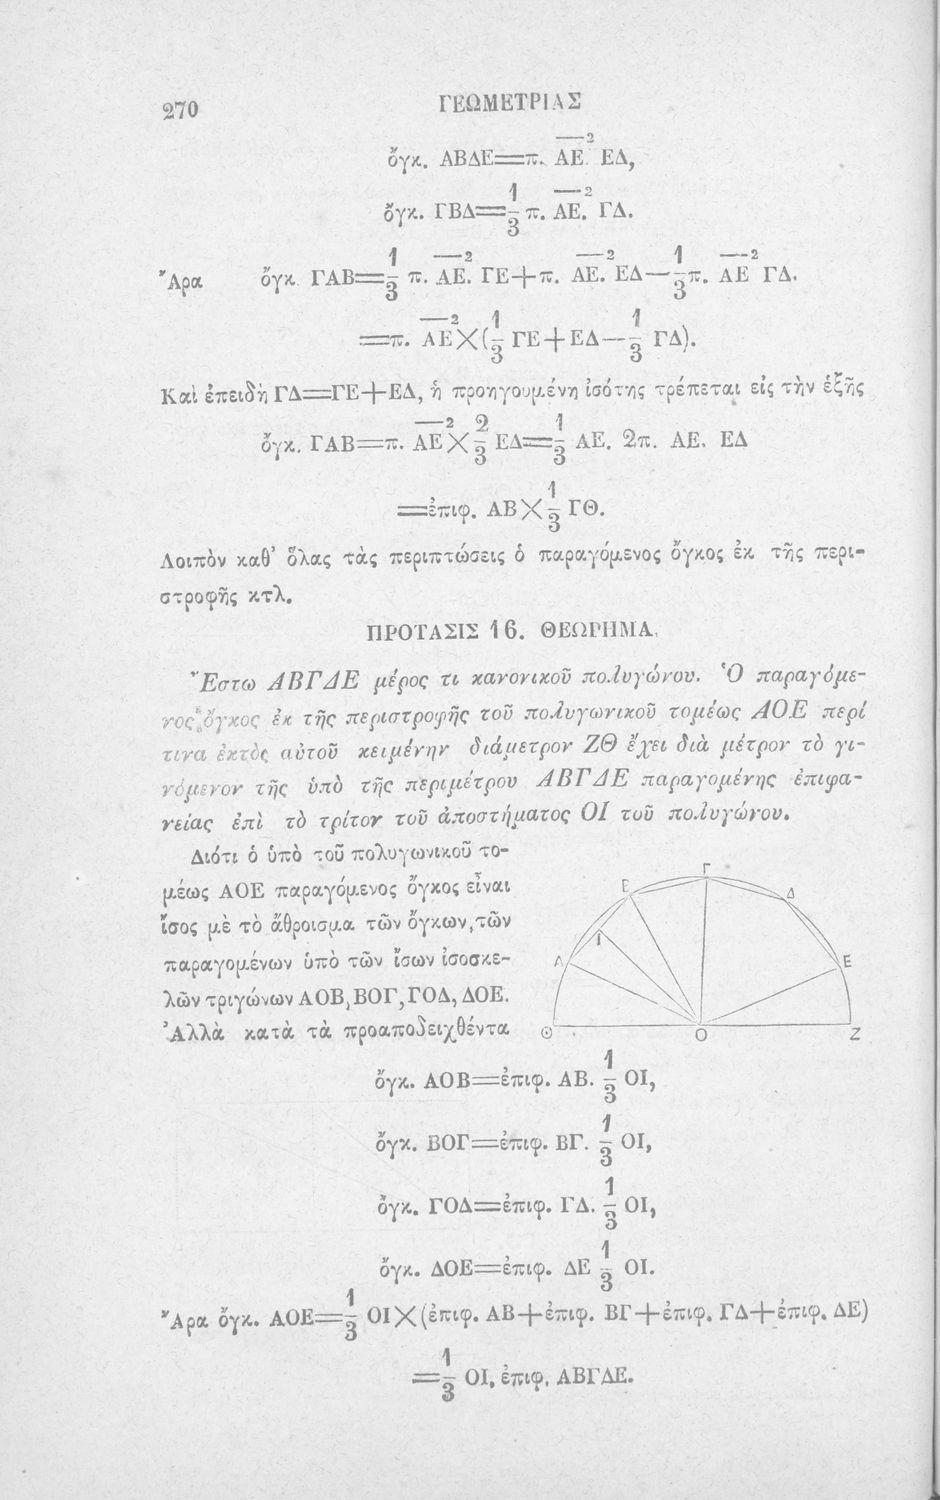 270
ΓΕΩΜΕΤΡΙΑΣ
ὄγκ. ΑΒΔΕ=π. ΑΕ². ΕΔ,
ὄγκ. ΓΒΔ=1/3 π. ΑΕ². ΓΔ.
Ἄρα ὄγκ. ΓΑΒ=1/3 π. ΑΕ². ΓΕ+π. ΑΕ². ΕΔ—1/3 π. ΑΕ² ΓΔ.
=π. ΑΕ²×(1/3 ΓΕ+ΕΔ—1/3 ΓΔ).
Καὶ ἐπειδὴ ΓΔ=ΓΕ+ΕΔ, ἡ προηγουμένη ἰσότης τρέπεται εἰς τὴν ἑξῆς
ὄγκ. ΓΑΒ=π. ΑΕ²×2/3 ΕΔ=1/3 ΑΕ. 2π. ΑΕ. ΕΔ
=ἐπιφ. ΑΒ×1/3 ΓΘ.
Λοιπὸν καθ’ ὅλας τὰς περιπτώσεις ὁ παραγόμενος ὄγκος ἐκ τῆς περι-
στροφῆς κτλ.
ΠΡΟΤΑΣΙΣ 16. ΘΕΩΡΗΜΑ.
Ἔστω ΑΒΓΔΕ μέρος τι κανονικοῦ πολυγώνου. Ὁ παραγόμε-
νος ὄγκος ἐκ τῆς περιστροφῆς τοῦ πολυγωνικοῦ τομέως ΑΟΕ περί
τινα ἐκτὸς αὐτοῦ κειμένην διάμετρον ΖΘ ἔχει διὰ μέτρον τὸ γι-
νόμενον τῆς ὑπὸ τῆς περιμέτρου ΑΒΓΔΕ παραγομένης ἐπιφα-
νείας ἐπὶ τὸ τρίτον τοῦ ἀποστήματος ΟΙ τοῦ πολυγώνου.
Διότι ὁ ὑπὸ τοῦ πολυγωνικοῦ το-
μέως ΑΟΕ παραγόμενος ὄγκος εἶναι
ἴσος μὲ τὸ ἄθροισμα τῶν ὄγκων, τῶν
παραγομένων ὑπὸ τῶν ἴσων ἰσοσκε-
λῶν τριγώνων ΑΟΒ, ΒΟΓ, ΓΟΔ, ΔΟΕ.
Ἀλλὰ κατὰ τὰ προαποδειχθέντα
Γ
Β
Δ
Ι
Α
Ε
Θ
Ο
Ζ
ὄγκ. ΑΟΒ=ἐπιφ. ΑΒ. 1/3 ΟΙ,
ὄγκ. ΒΟΓ=ἐπιφ. ΒΓ. 1/3 ΟΙ,
ὄγκ. ΓΟΔ=ἐπιφ. ΓΔ. 1/3 ΟΙ,
ὄγκ. ΔΟΕ=ἐπιφ. ΔΕ 1/3 ΟΙ.
Ἄρα ὄγκ. ΑΟΕ=1/3 ΟΙ×(ἐπιφ. ΑΒ+ἐπιφ. ΒΓ+ἐπιφ. ΓΔ+ἐπιφ. ΔΕ)
=1/3 ΟΙ. ἐπιφ. ΑΒΓΔΕ.